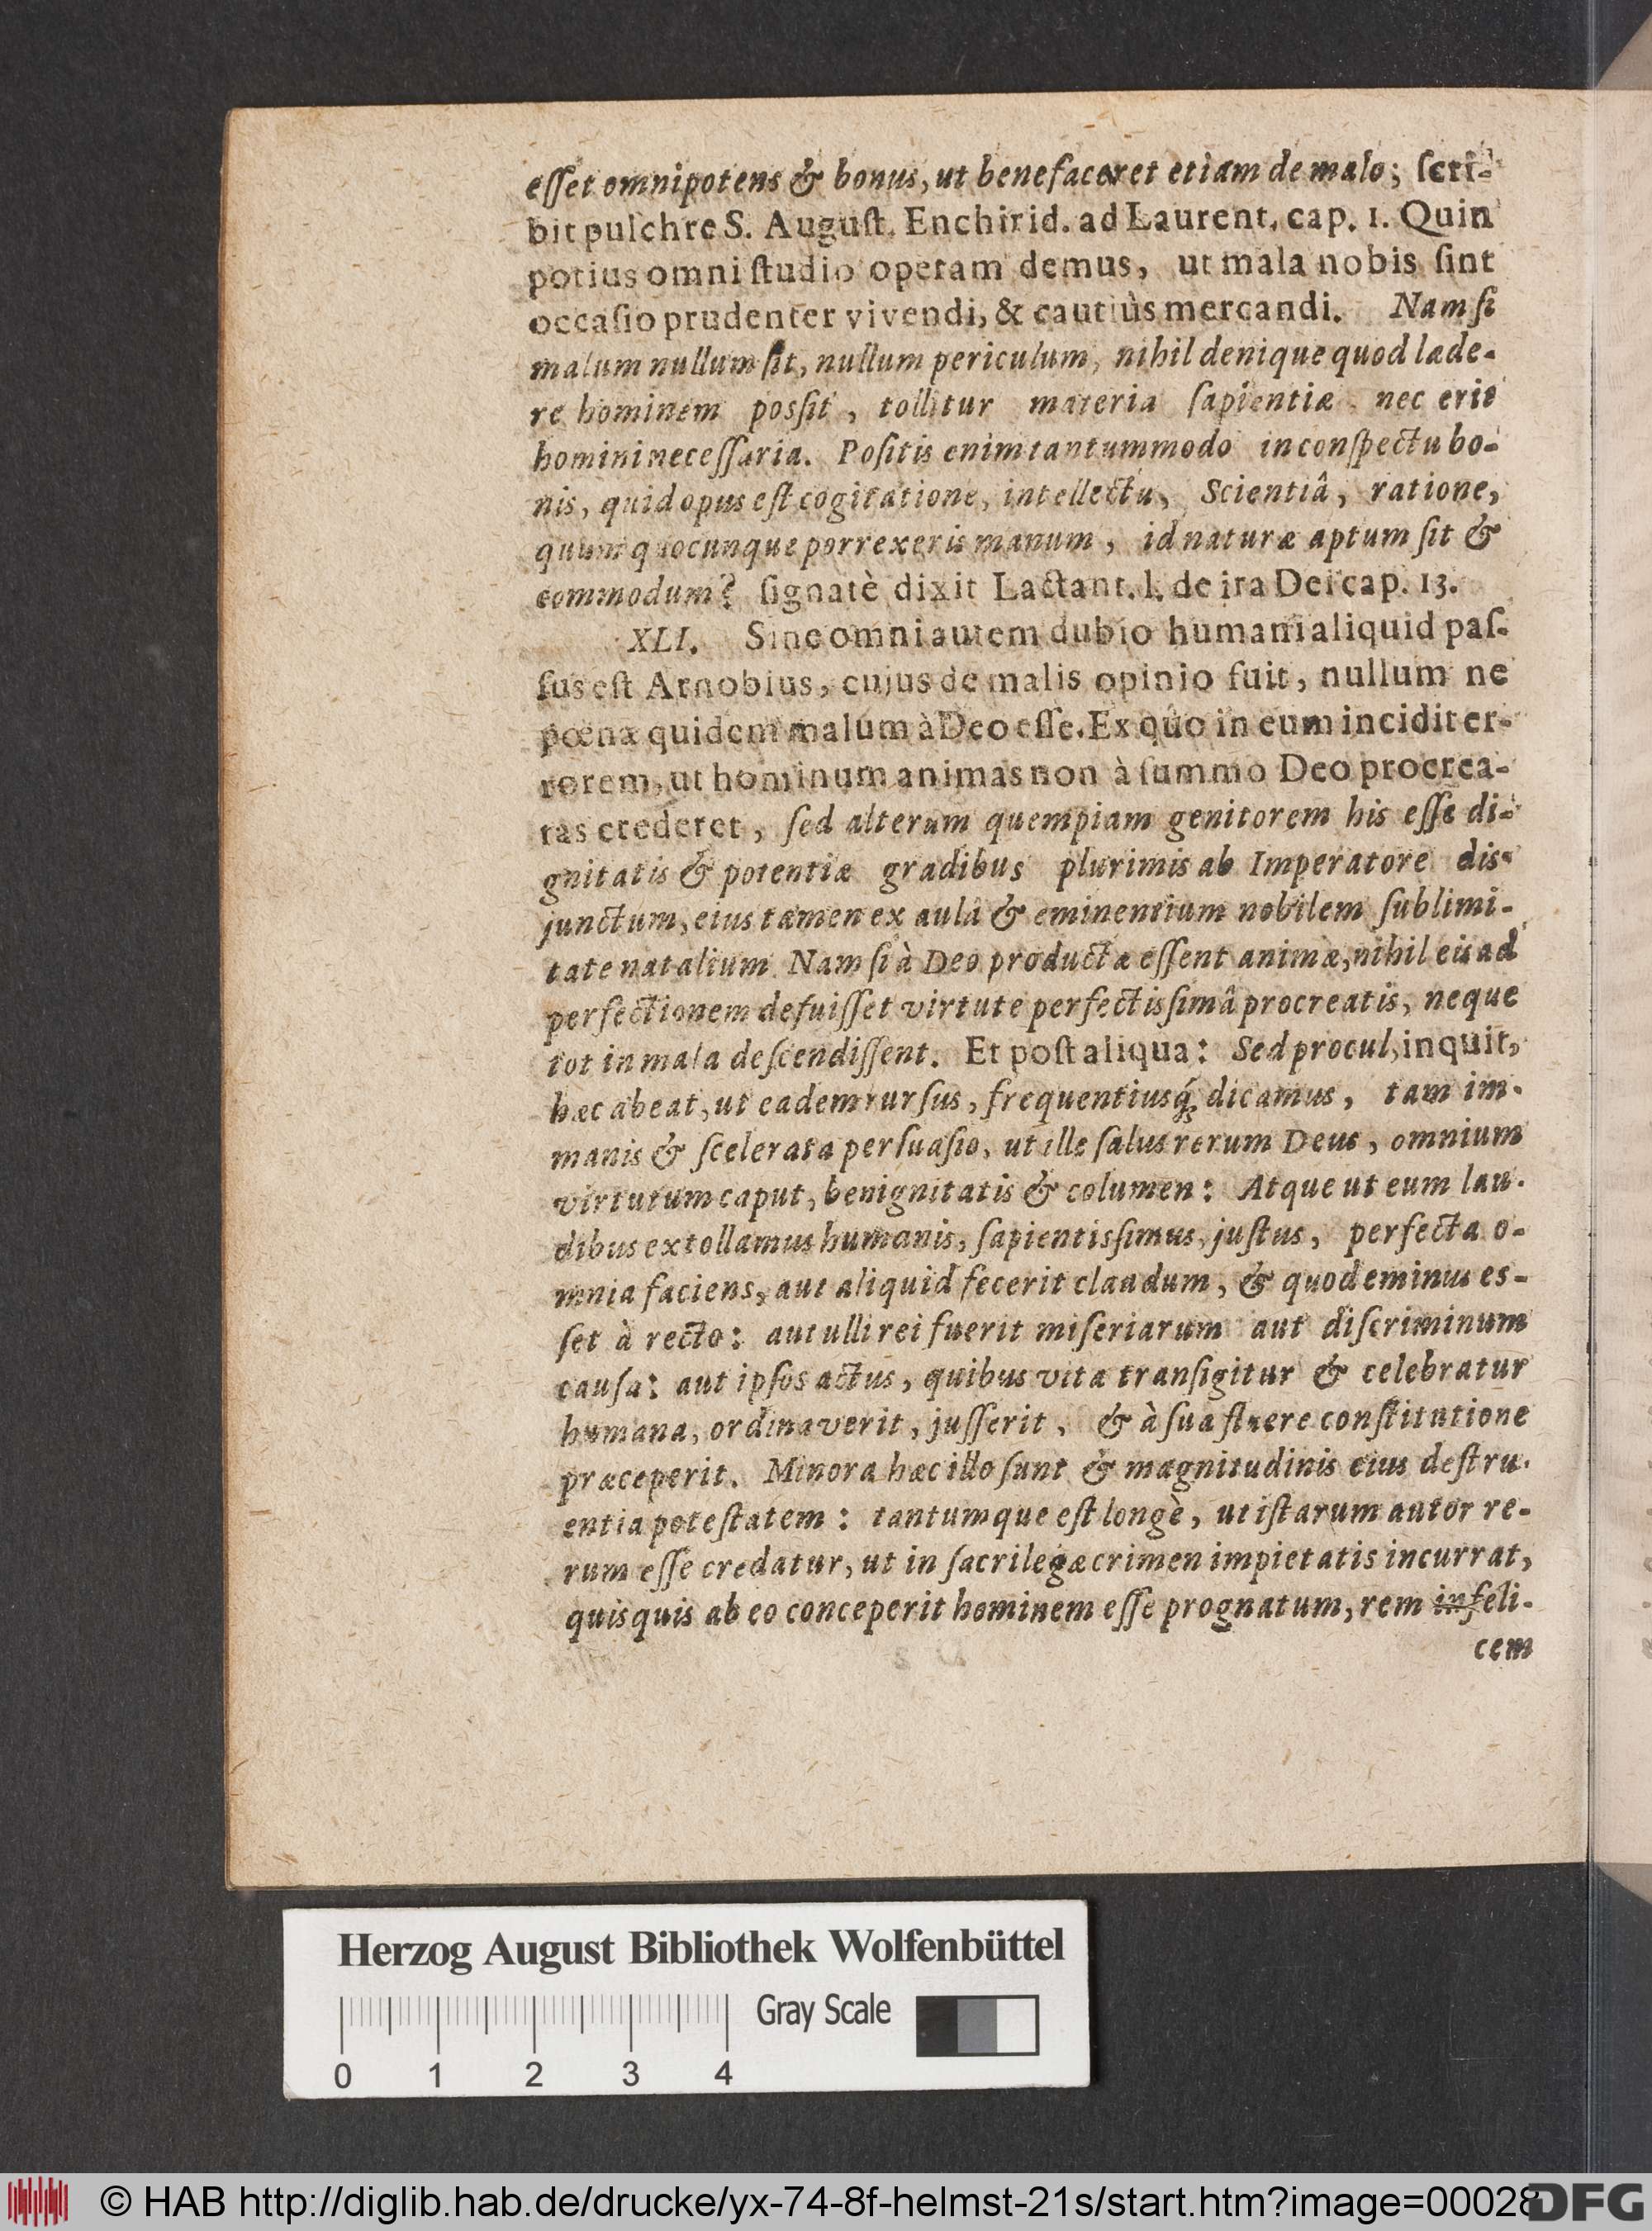 eſſet omnipotens & bonus, ut benefaceret etiam de malo; ſcri-
bit pulchre S. Auguſt. Enchirid. ad Laurent. cap. 1. Quin
potius omni ſtudio operam demus, ut mala nobis ſint
occaſio prudenter vivendi, & cautiùs mercandi. Nam ſi
malum nullum ſit, nullum periculum, nihil denique quod læde-
re hominem posſit, tollitur materia ſapientiæ nec erit
homini neceſſaria. Poſitis enim tantummodo in conſpectu bo-
nis, quid opus eſt cogitatione, intellectu, Scientiâ, ratione,
quum quocunque porrexeris manum, id naturæ aptum ſit &
commodum? ſignatè dixit Lactant. l. de ira Dei cap. 13.
XLI. Sine omni autem dubio humani aliquid paſ-
ſus eſt Arnobius, cujus de malis opinio fuit, nullum ne
pœnæ quidem malum à Deo eſſe. Ex quo in eum incidit er-
rorem, ut hominum animas non à ſummo Deo procrea-
tas crederet, ſed alterum quempiam genitorem his eſſe di-
gnitatis & potentiæ gradibus plurimis ab Imperatore dis-
junctum, eius tamen ex aulâ & eminentium nobilem ſublimi-
tate natalium. Nam ſi à Deo productæ eſſent animæ, nihil eis ad
perfectionem defuiſſet virtute perfectisſimâ procreatis, neque
tot in mala deſcendiſſent. Et poſt aliqua: Sed procul, inquit,
hæc abeat, ut eadem rurſus, frequentiusq́; dicamus, tam im-
manis & ſcelerata perſuaſio, ut ille ſalus rerum Deus, omnium
virtutum caput, benignitatis & columen: Atque ut eum lau-
dibus extollamus humanis, ſapientisſimus, juſtus, perfecta o-
mnia faciens, aut aliquid fecerit claudum, & quod eminus es-
ſet à recto: aut ulli rei fuerit miſeriarum aut diſcriminum
cauſa: aut ipſos actus, quibus vita tranſigitur & celebratur
humana, ordinaverit, juſſerit, & à ſua fluere conſtitutione
præceperit. Minora hæc illo ſunt & magnitudinis eius deſtru-
entia poteſtatem: tantumque eſt longè, ut iſtarum autor re-
rum eſſe credatur, ut in ſacrilegæ crimen impietatis incurrat,
quisquis ab eo conceperit hominem eſſe prognatum, rem infeli-
cem
Herzog August Bibliothek Wolfenbüttel
Gray Scale
0 1 2 3 4
© HAB http://diglib.hab.de/drucke/yx-74-8f-helmst-21s/start.htm?image=00028
DFG